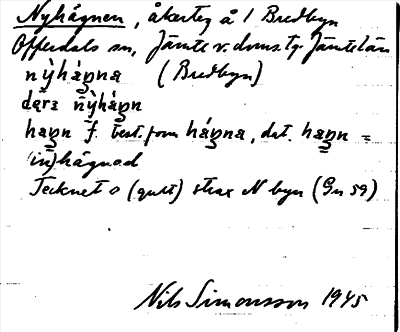 Nyhägnen, åkerteg å 1 Bredbyn
Offerdals sn, Jämtl. v. doms. tg. Jämtl. län
nỳháŋna (Bredbyn)
dära nỳháŋn
haŋn f. best. form háŋna, dat. haŋn =
(in)hägnad
Tecknet o (gult) strax N byn (Gn 59)
Nils Simonsson 1945